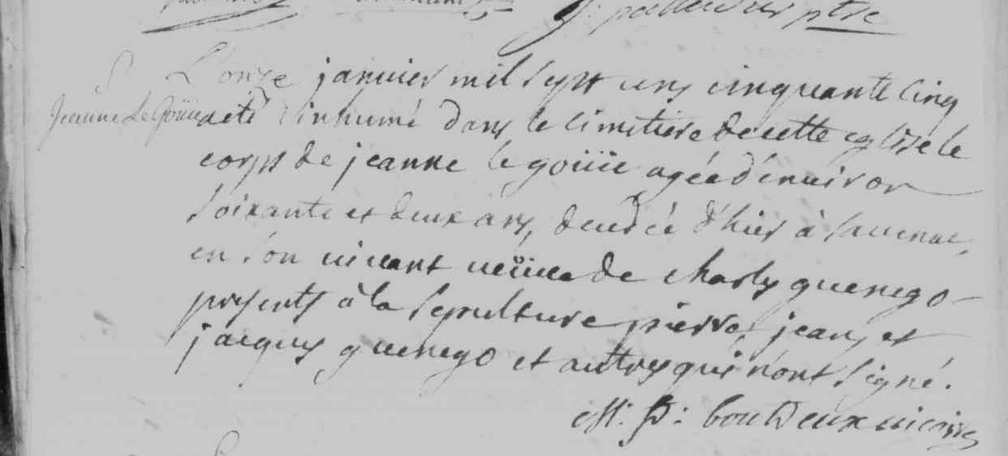 ptre
S
Jeanne Le Goüie
L'onze janvier mil sept cens cinquante cinq
a eté inhumé dans le cimetiere de cette eglise le
corps de jeanne le goüie agée d'environ
soixante et deux ans, decedée d'hier à
en son vivant veüve de charles guenego
presents à la sepulture pierre, jean, et
jacques guenego et autres qui n'ont signé.
M: P: boutdeux vicaire